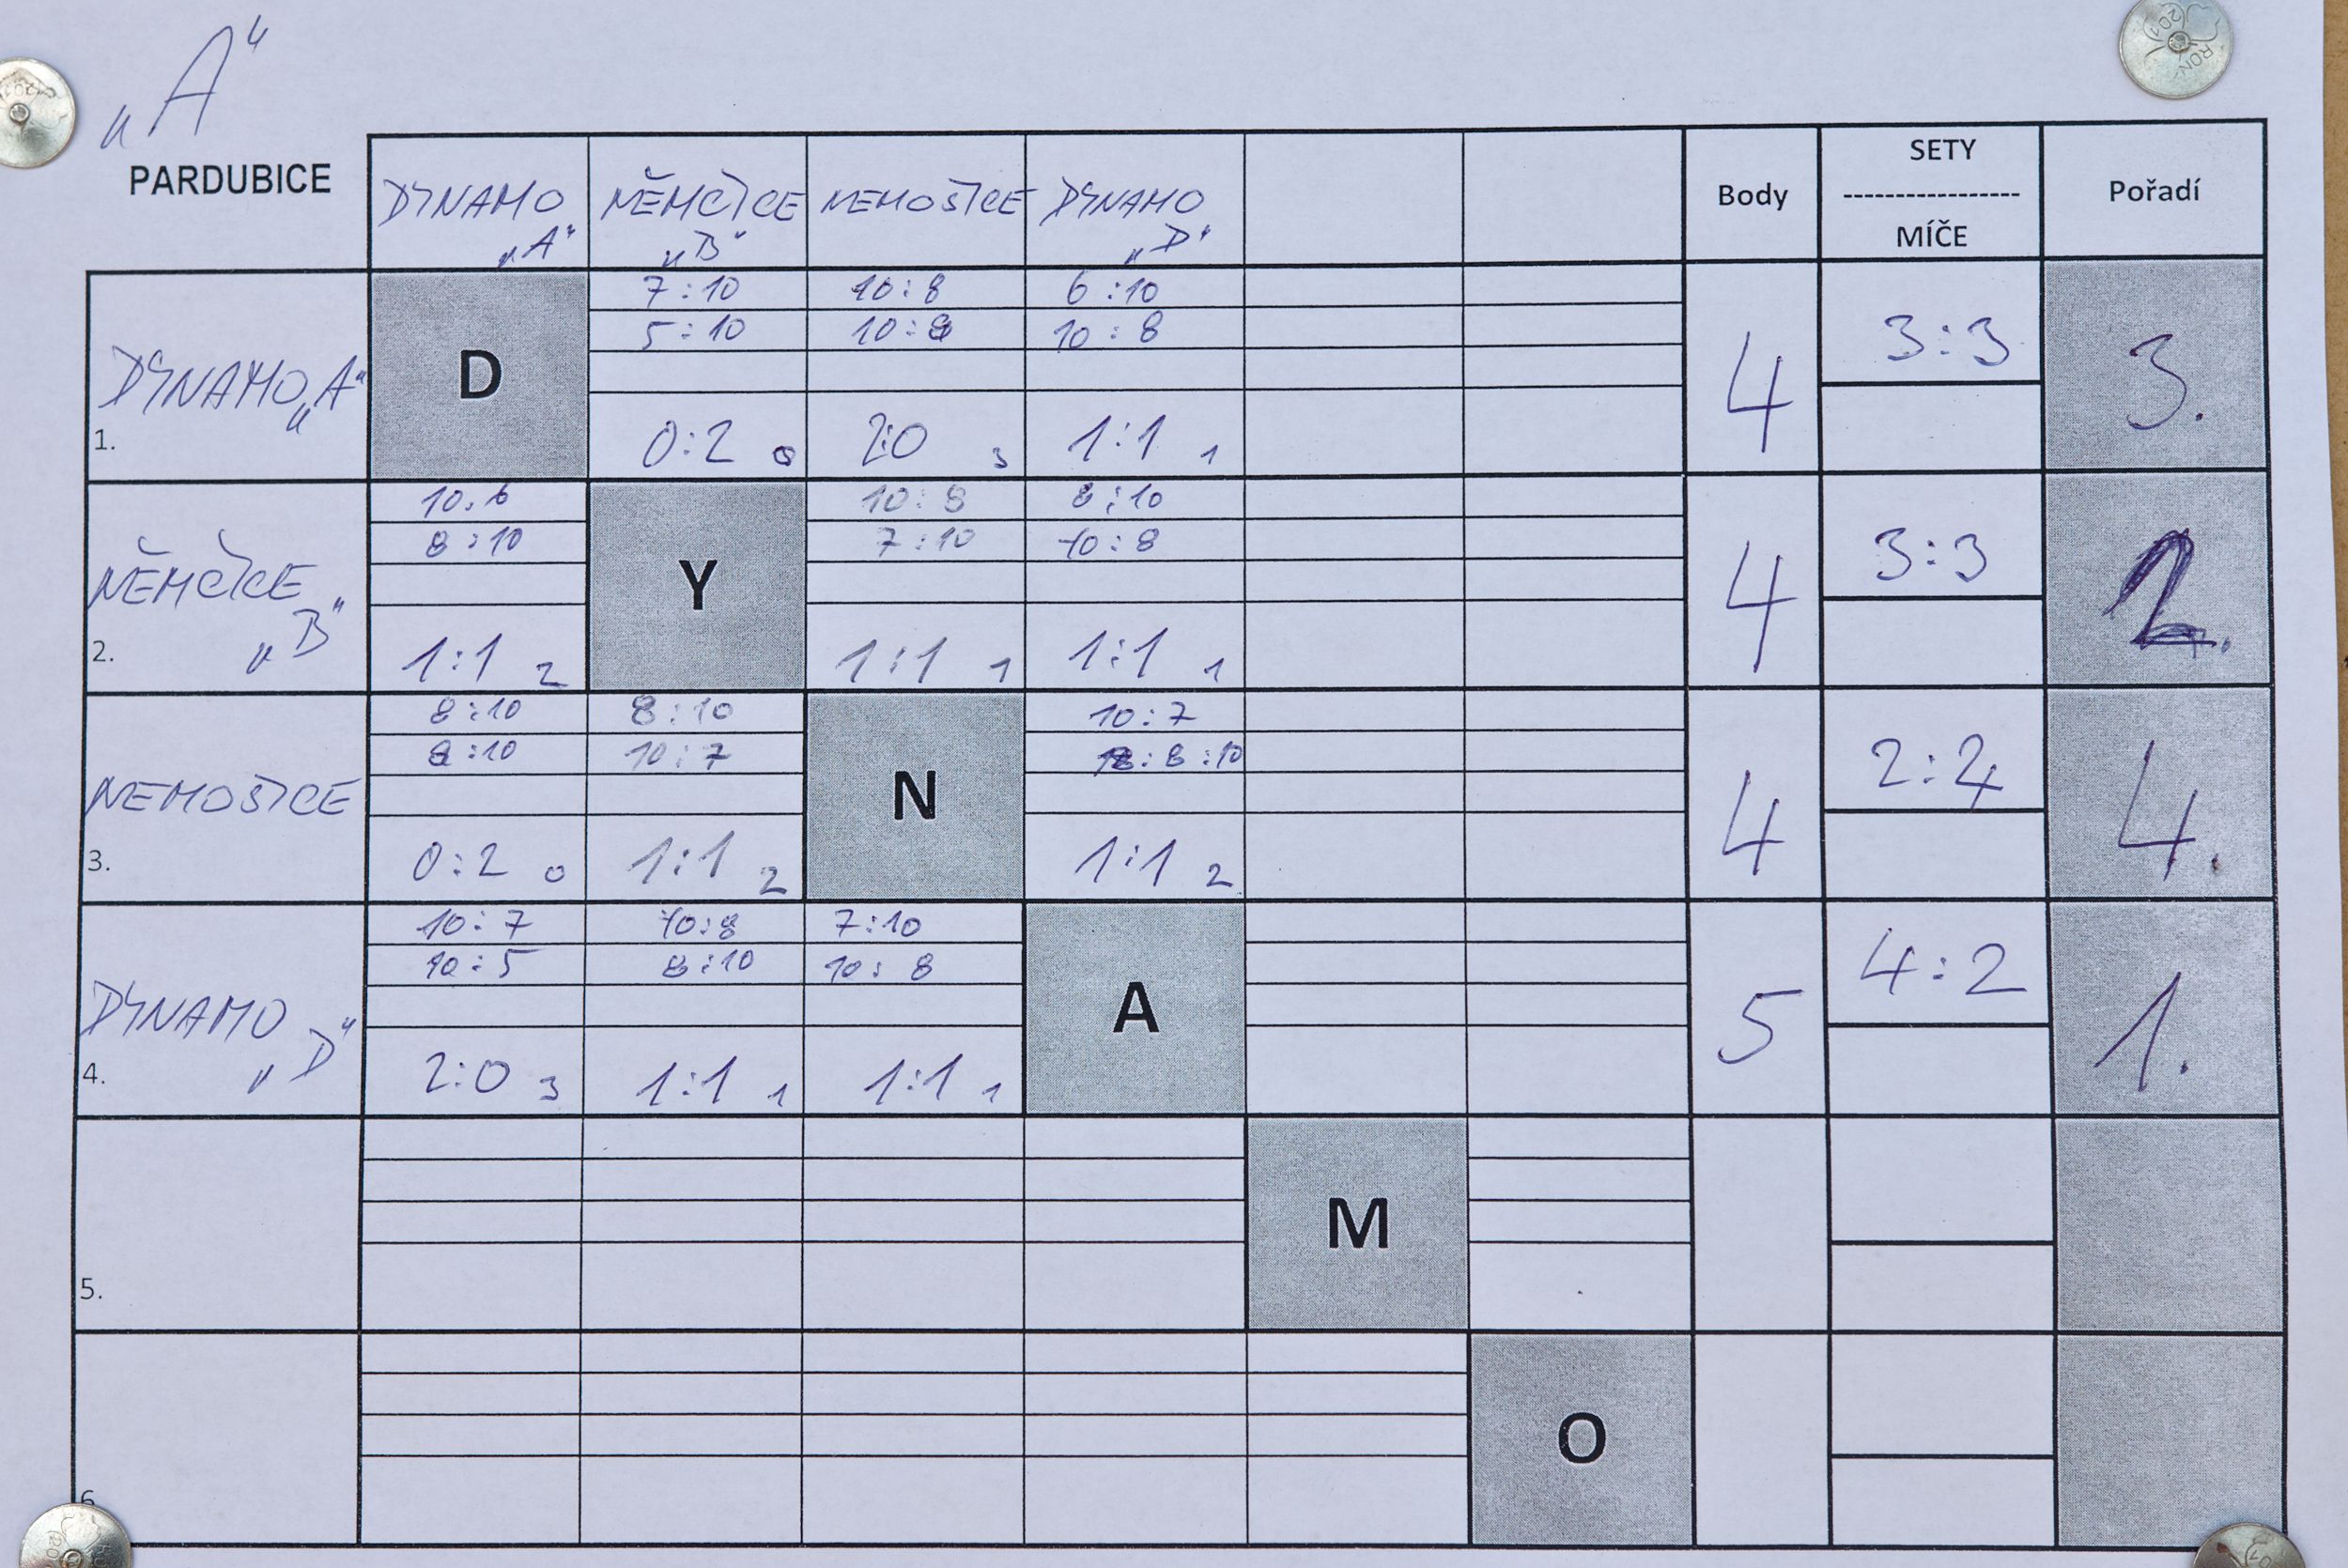 „A“
PARDUBICE
DYNAMO „A“
NĚMČICE „B“
NEMOŠICE
DYNAMO „D“
Body
SETY
----------------
MÍČE
Pořadí
1. DYNAMO „A“
D
7:10
5:10
0:2 0
10:8
10:8
2:0 3
6:10
10:8
1:1 1
4
3:3
3.
2. NĚMČICE „B“
10:6
8:10
1:1 2
Y
10:8
7:10
1:1 1
8:10
10:8
1:1 1
4
3:3
2.
3. NEMOŠICE
8:10
8:10
0:2 0
8:10
10:7
1:1 2
N
10:7
8:10
1:1 2
4
2:4
4.
4. DYNAMO „D“
10:7
10:5
2:0 3
10:8
8:10
1:1 1
7:10
10:8
1:1 1
A
5
4:2
1.
5.
M
6
O